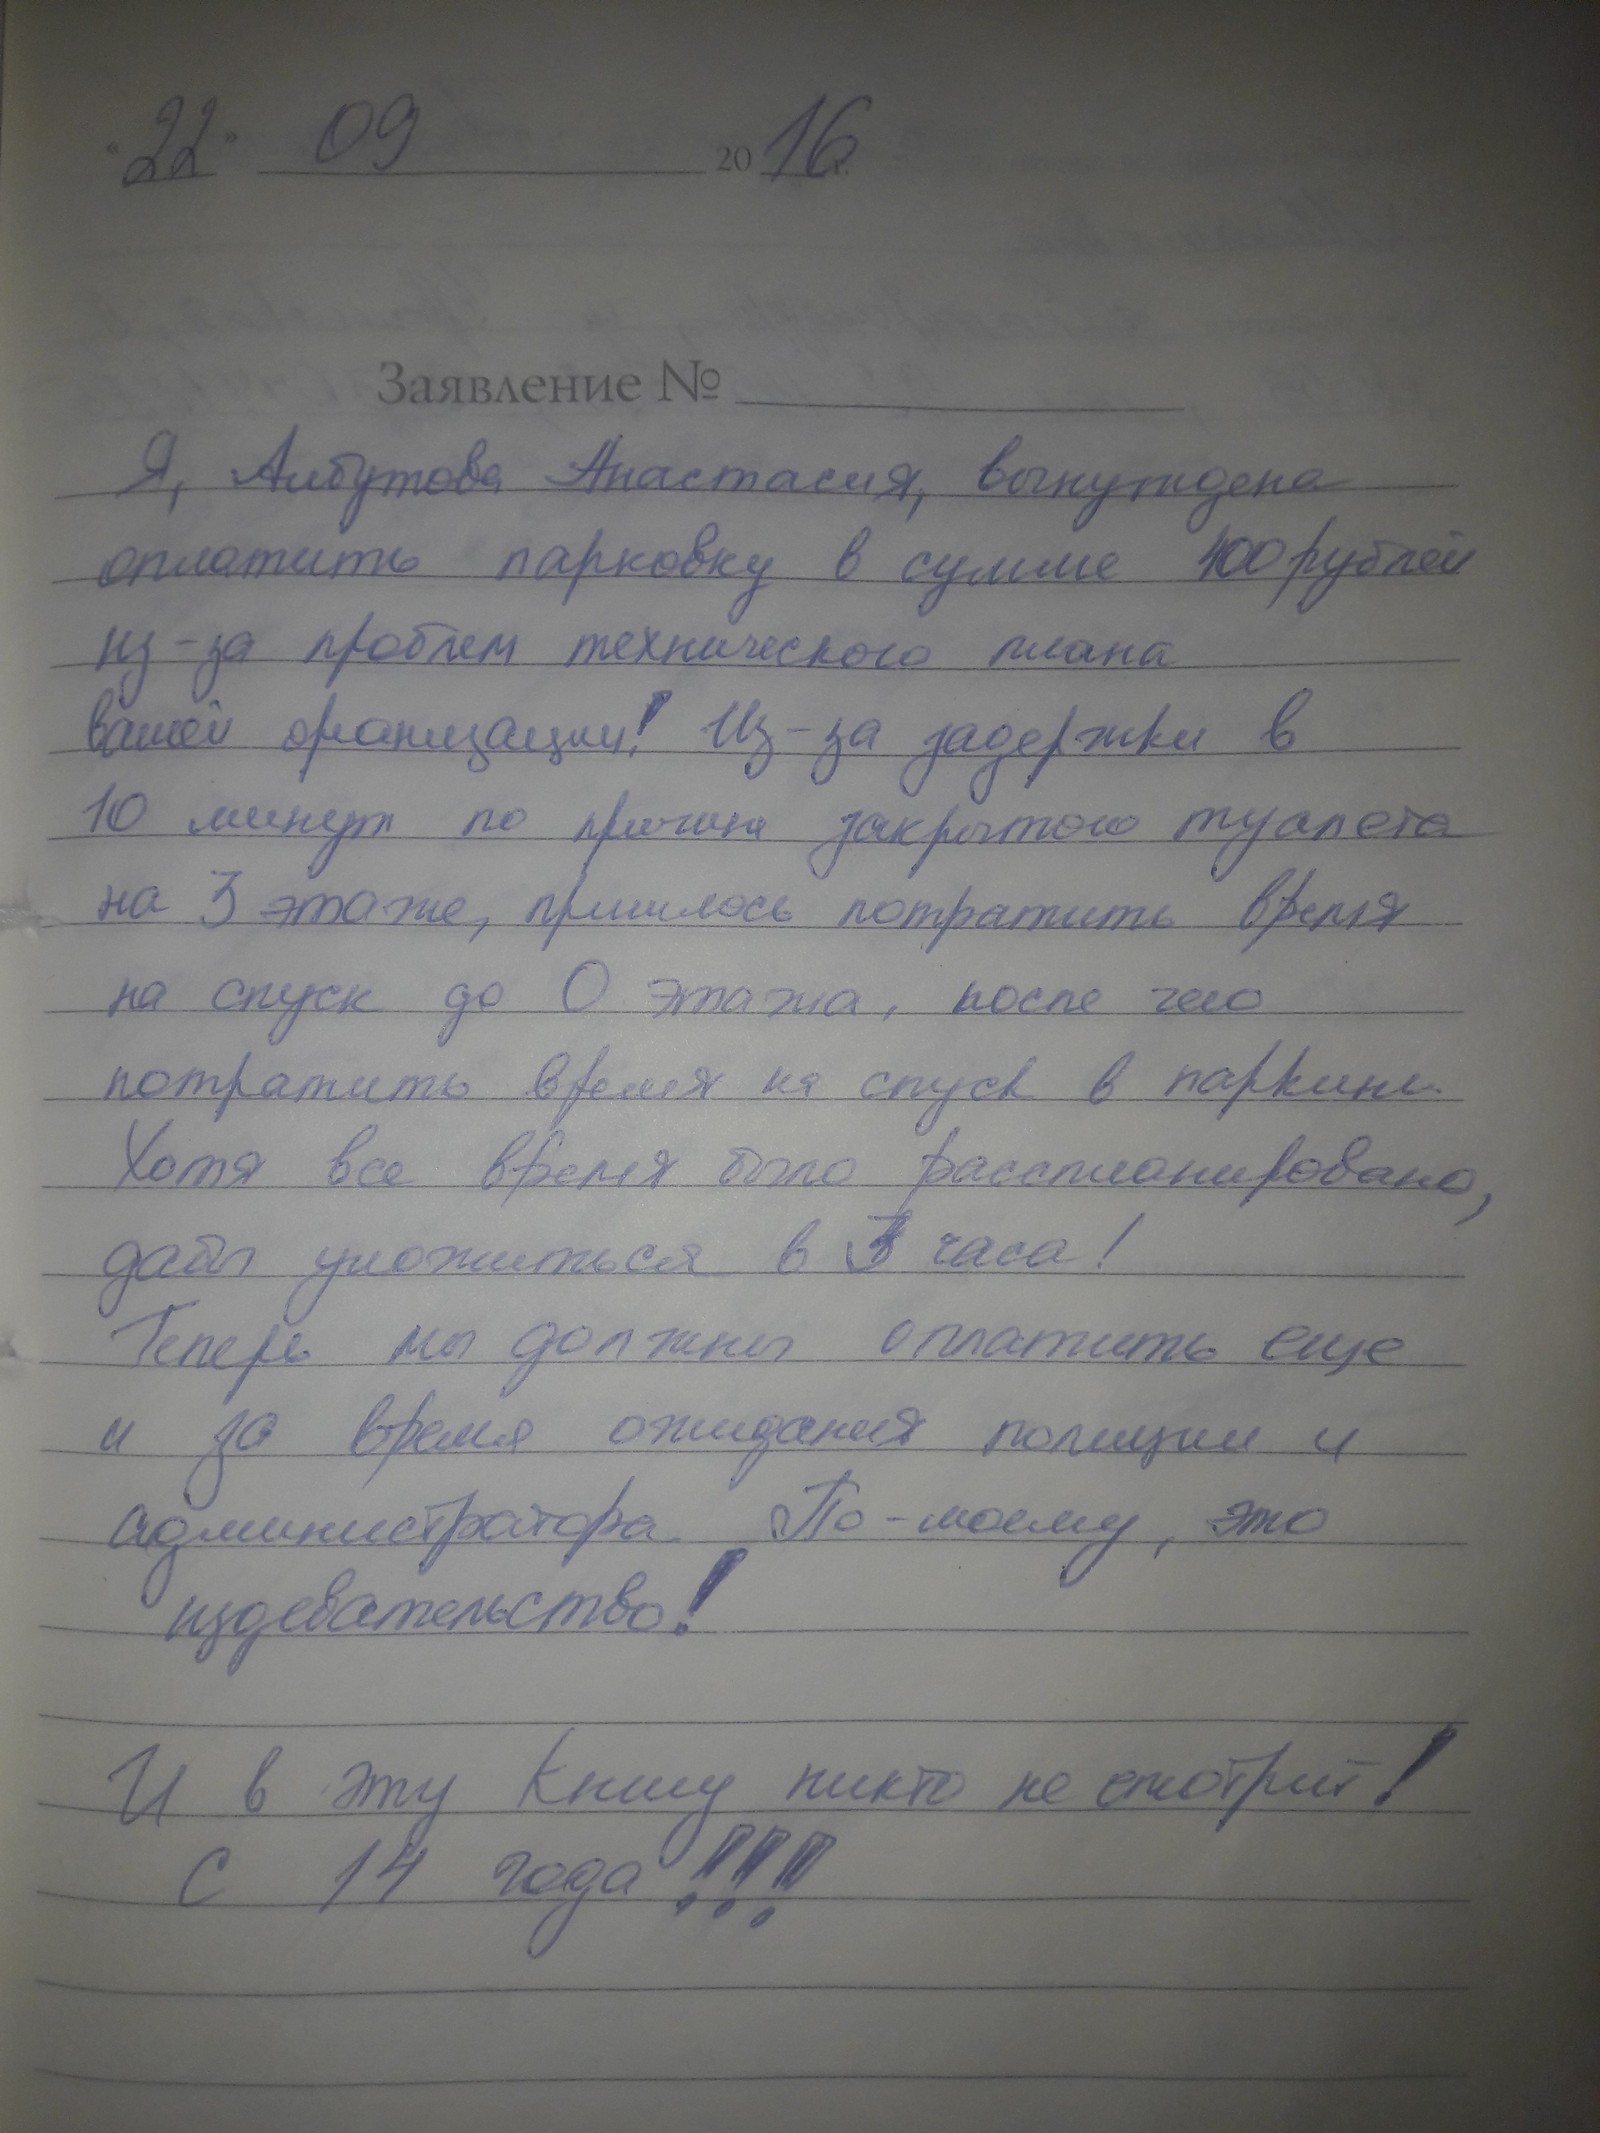 "22" 09 2016 г.
Заявление №
Я, Албутова Анастасия, вынуждена
оплатить парковку в сумме 400 рублей
из-за проблем технического плана
вашей организации! Из-за задержки в
10 минут по причине закрытого туалета
на 3 этаже, пришлось потратить время
на спуск до 0 этажа, после чего
потратить время на спуск в паркинг.
Хотя все время было расспланировано,
дабы уложиться в 3 часа!
Теперь мы должны оплатить еще
и за время ожидания полиции и
администратора. По-моему, это
издевательство!
И в эту Книгу никто не смотрит!
С 14 года!!!